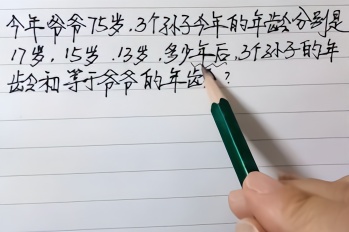 今年爷爷75岁,3个孙子今年的年龄分别是
17岁,15岁,13岁,多少年后,3个孙子的年
龄和等于爷爷的年龄?